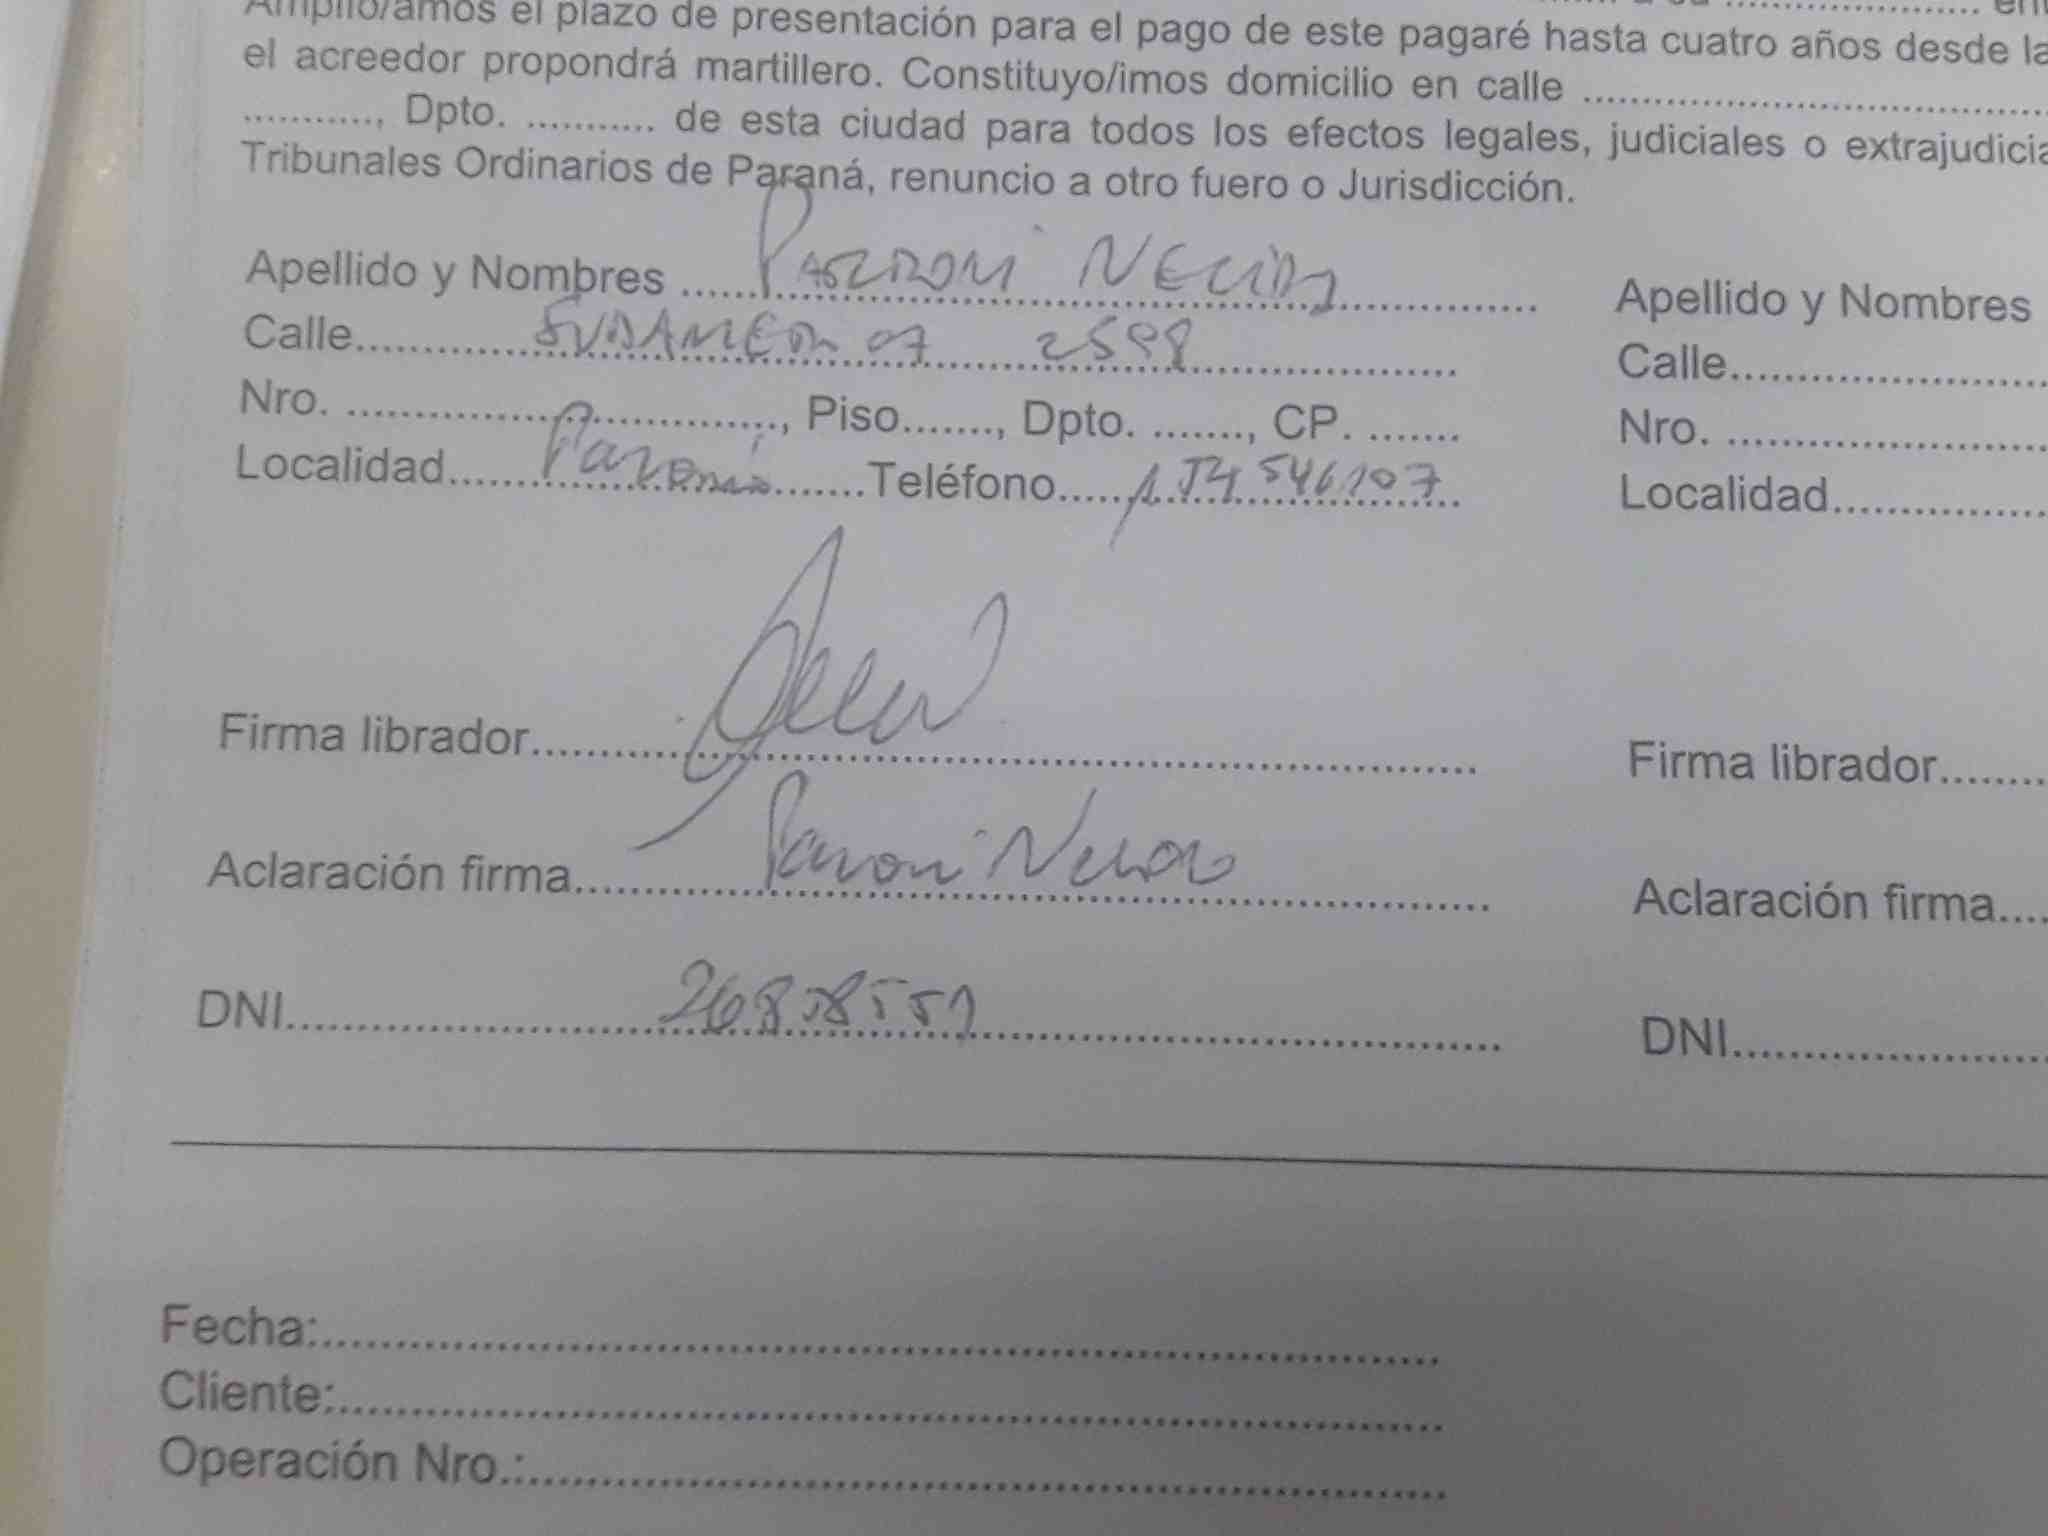 Amplio/amos el plazo de presentación para el pago de este pagaré hasta cuatro años desde la
el acreedor propondrá martillero. Constituyo/imos domicilio en calle ........................................
............, Dpto. ........... de esta ciudad para todos los efectos legales, judiciales o extrajudicia
Tribunales Ordinarios de Paraná, renuncio a otro fuero o Jurisdicción.
Apellido y Nombres ...... Apellido y Nombres
Calle............ 2598 Calle............
Nro. ..................................., Piso......., Dpto. ......., CP. ....... Nro. ............
Localidad...... Paraná .......Teléfono..... 154546107 Localidad............
Firma librador............ Firma librador........
Aclaración firma............ Aclaración firma....
DNI............ DNI............
Fecha:............
Cliente:............
Operación Nro.:............